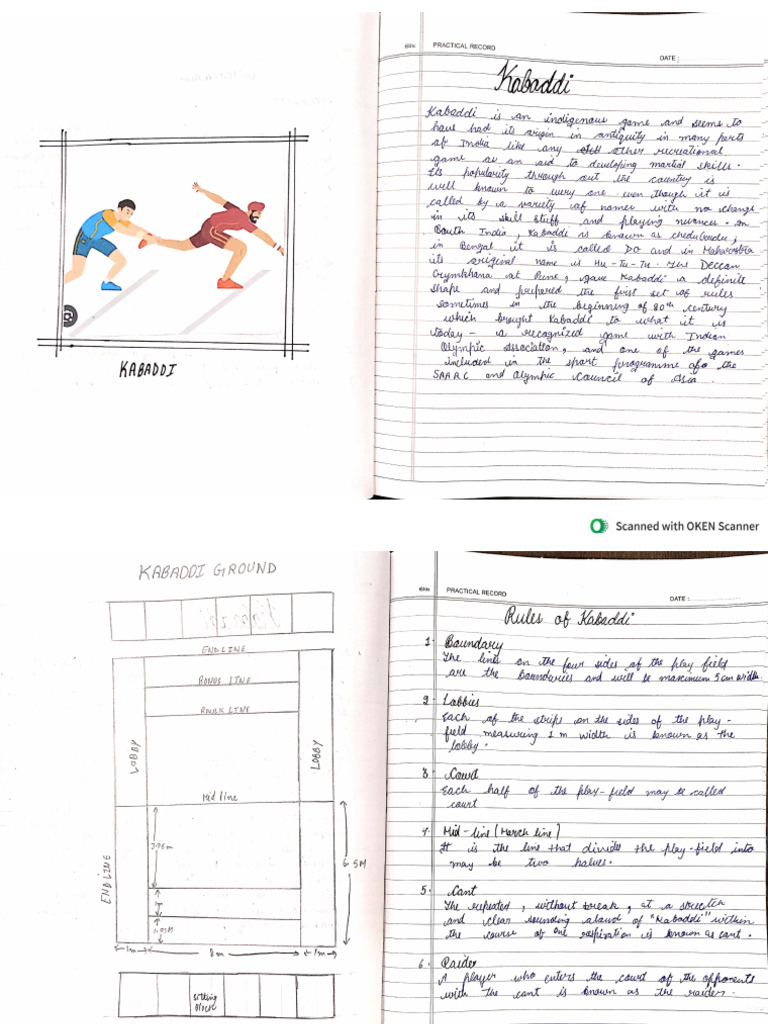 KABADDI
PRACTICAL RECORD
DATE :
Kabaddi
Kabaddi is an indigenous game and seems to
have had its origin in antiquity in many parts
of India like any other recreational
game as an aid to developing martial skills.
Its popularity through out the country is
well known to every one even though it is
called by a variety of names with no change
in its skill stuff and playing nuances. In
South India, Kabaddi is known as chedubudu,
in Bengal it is called DO and in Maharashtra
its original name is Hu-Tu-Tu. The Deccan
Gymkhana at Pune, gave Kabaddi a definite
shape and prepared the first set of rules
sometimes in the beginning of 20th century
which brought Kabaddi to what it is
today - a recognized game with Indian
Olympic Association, and one of the games
included in the sport programme of the
SAARC and Olympic Council of Asia.
Scanned with OKEN Scanner
KABADDI GROUND
END LINE
BONUS LINE
BAULK LINE
LOBBY
LOBBY
Mid line
END LINE
6.5M
1m
8m
1m
sitting
block
PRACTICAL RECORD
DATE :
Rules of Kabaddi
1. Boundary
The lines on the four sides of the play field
are the boundaries and will be maximum 5 cm width.
2. Lobbies
Each of the strips on the sides of the play-
field measuring 1 m width is known as the
lobby.
3. Court
Each half of the play-field may be called
court
4. Mid-line (March line)
It is the line that divides the play-field into
may be two halves.
5. Cant
The repeated, without break, at a stretch
and clear sounding aloud of "Kabaddi" within
the course of one respiration is known as cant.
6. Raider
A player who enters the court of the opponents
with the cant is known as the raider.